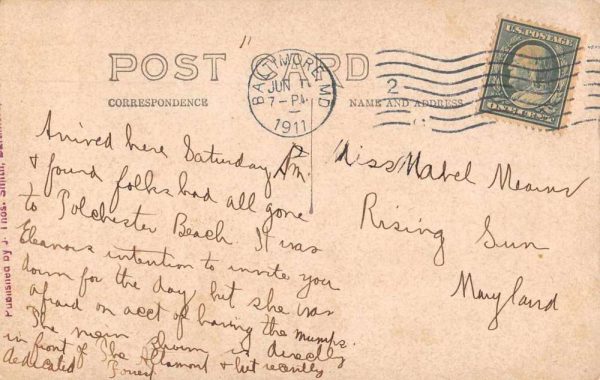 POST CARD
CORRESPONDENCE
NAME AND ADDRESS
BALTIMORE, MD.
JUN
7-PM
1911
2
U.S. POSTAGE
ONE CENT
Arrived here Saturday P.M.
& found folks had all gone
to Tolchester Beach. It was
Eleanors intention to invite you
down for the day, but she was
afraid on acct of having the mumps.
The main shown is directly
in front of The Altamont & but recently
dedicated
Miss Mabel Mearns
Rising Sun
Maryland
Published by J. Thos. Smith,